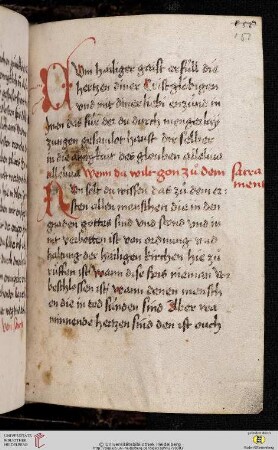 157
Kom hailiger gaist erfüll die
hertzen diner Cristglöbigen
vnd mit diner lieb enzünd in
inen das für der du durch menger lay
zungen gesamlot haust die selben
in die ainikait des glouben alleluia
alleluia Wem du wilt gon zu dem sacra
ment
Nun solt du wissen das zu dem er
sten allen menschen die in den
gnaden gottes sind vnd sterbs vnd in
nit verbotten ist von ordnung vnd
haltung der hailigen kirchen hie zu
rüsten ist wann diss spis nieman ver
beschlossen ist wann denen mensch
en die in tod sünden sind Aber ra
minnende hertzen sind den ist ouch
UNIVERSITÄTS-
BIBLIOTHEK
HEIDELBERG
© Universitätsbibliothek Heidelberg